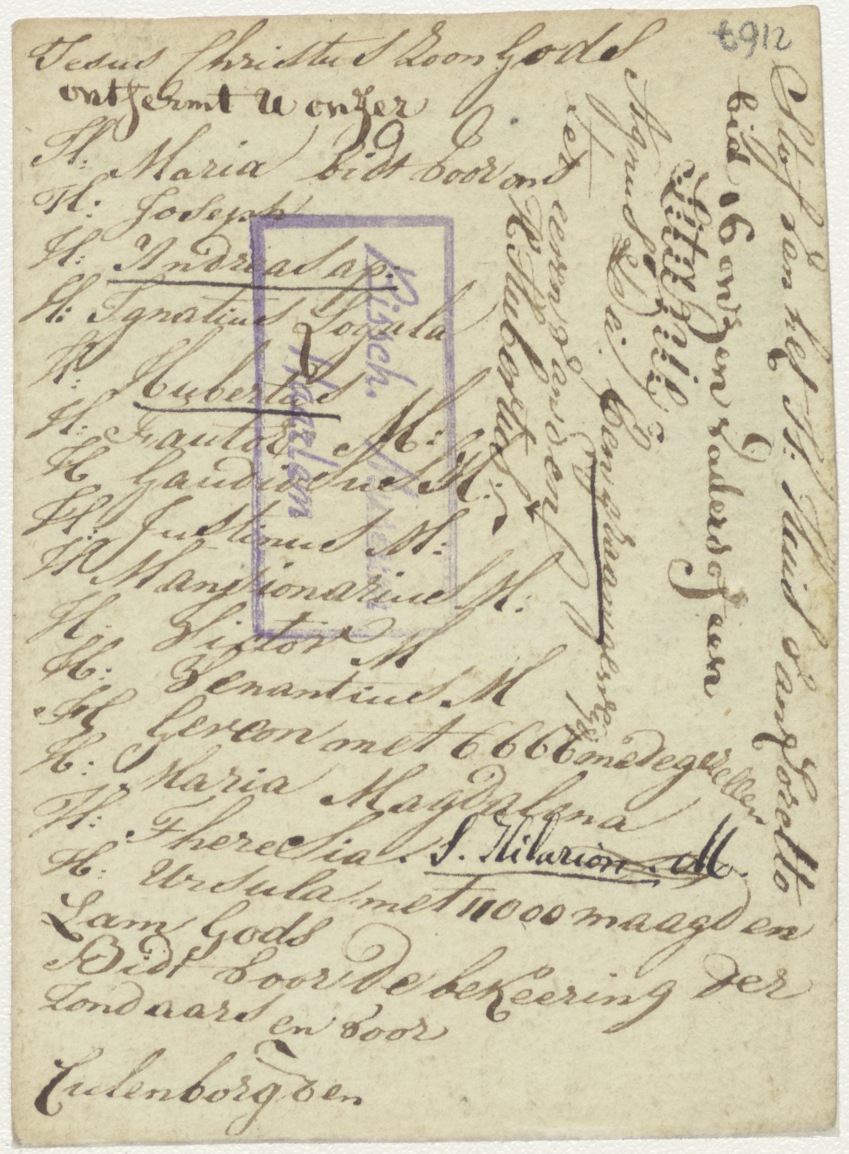 6912
Jesus Christus Zoon Gods
ontfermt u onzer
H: Maria bidt voor ons
H: Joseph
H: Andreas ap:
H: Ignatius Loyala
H: Hubertus
H: Fautor M:
H Gaudiosus M:
H: Justinus M:
H Mansionarius M:
H: Victor M
H: Venantius M
H Gereon met 6666 medegesellen
H: Maria Magdalena
H: Theresia
S. Hilarion. M.
H: Ursula met 11000 maagden
Lam Gods
Bidt voor de bekeering der
Zondaars en voor
Culenborg den
Stof van het H: Huis van Loretto
bid 6 onzen vaders
Agnus Dei
ter eeren van den
H Hubertus
Bissch. Museum
Haarlem